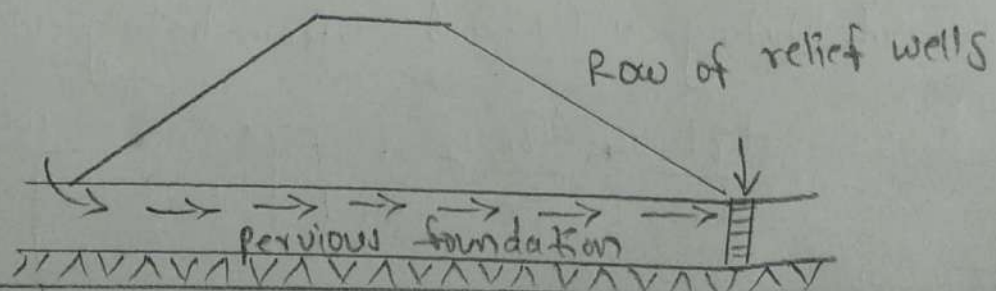 Row of relief wells
pervious foundation